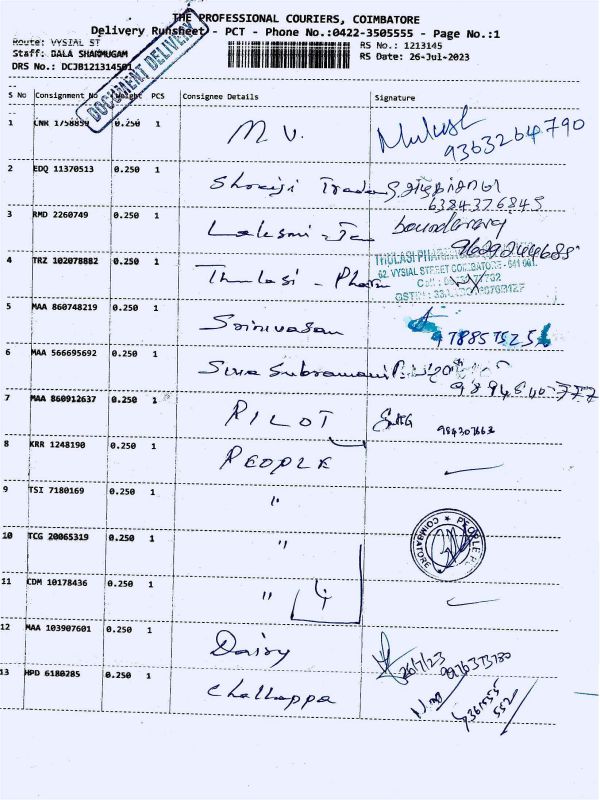 THE PROFESSIONAL COURIERS, COIMBATORE
Delivery Runsheet - PCT - Phone No.:0422-3505555 - Page No.:1
Route: VYSIAL ST
RS No.: 1213145
Staff: BALA SHANMUGAM
RS Date: 26-Jul-2023
DRS No.: DCJB121314501
DOCUMENT DELIVERY
S No Consignment No Weight PCS Consignee Details Signature
1 CNR 1758859 0.250 1 M V. Mukesh
9363264790
2 EDQ 11370513 0.250 1 Shraiji
6384376845
3 RMD 2260749 0.250 1 Laksmi
4 TRZ 102078882 0.250 1 Thulasi - Pharm
THULASI
62, VYSIAL STREET COIMBATORE - 641 001.
5 MAA 860748219 0.250 1 Srinivasan
6 MAA 566695692 0.250 1 Siva Subramani
7 MAA 860912637 0.250 1 PILOT
8 KRR 1248190 0.250 1 PEOPLE
9 TSI 7180169 0.250 1 "
10 TCG 20065319 0.250 1 "
PEOPLE
COIMBATORE
11 CDM 10178436 0.250 1 " 4
12 MAA 103907601 0.250 1 Daisy
26/7/23
13 HPD 6180285 0.250 1 Challappa